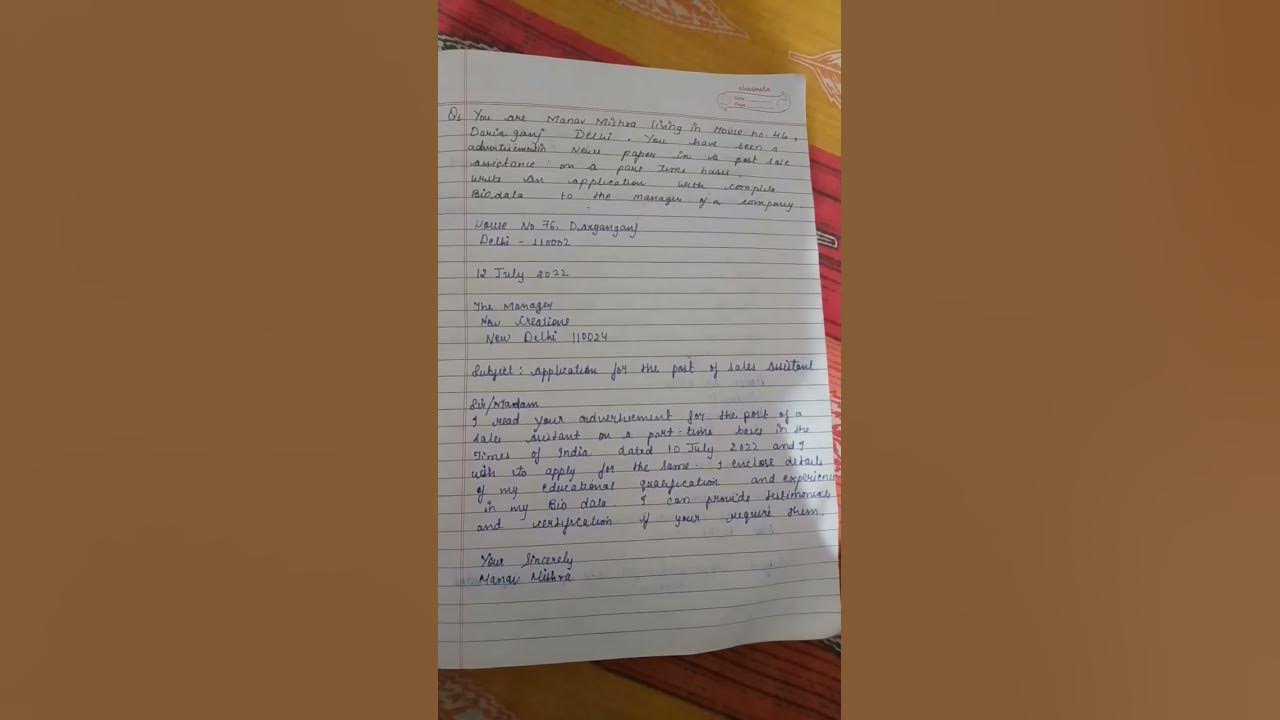 classmate
Date
Page
Q1 You are Manav Mishra living in House no. 46,
Daria ganj Delhi. You have seen a
advertisementin Newe paper in a post sale
assistance on a part time base.
write an application with complete
Bio.data to the manager of a company.
House No 76, Darganganj
Delhi - 110002
12 July 2022
The Manager
New Creations
New Delhi 110024
Subject: Application for the post of sales Assistant
Sir/Madam
I read your advertisement for the post of a
sales assistant on a part-time bases in the
Times of India dated 10 July 2022 and I
wish to apply for the same. I enclose details
of my educational qualification and experience
in my Bio data. I can provide testimonials
and certification if your require them.
Your Sincerely
Manav Mishra